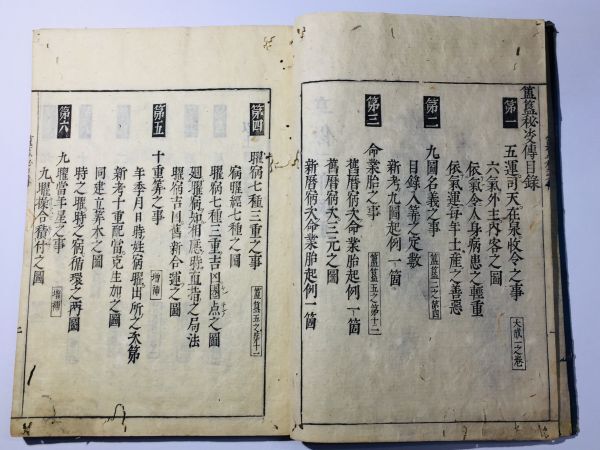 簠簋秘决傳目録
第一 五運司天在泉收令之事 大成一之巻
六氣外主内客之圖
依氣令人身病患之輕重
依氣運毎年土産之善惡
第二 九圖名義之事 簠簋二之第四
目録入筭之定數
新考九圖起例一箇
第三 命業胎之事 簠簋五之第十二
舊暦宿大命業胎起例一箇
舊暦宿大三元之圖
新暦宿大命業胎起例一箇
第四 曜宿七種三重之事 簠簋五之第十二
宿曜經七種之圖
曜宿七種三重吉凶圏点之圖
廻曜宿知相應時直星之局法
曜宿吉凶舊新合運之圖
第五 十重筭之事 増補
年季月日時姓宿曜出所之次第
新考十重配當克生加之圖
同建立筭木之圖
時之曜時之宿循環之两圖
第六 九曜當年星之事 増補
九曜操合積付之圖
二